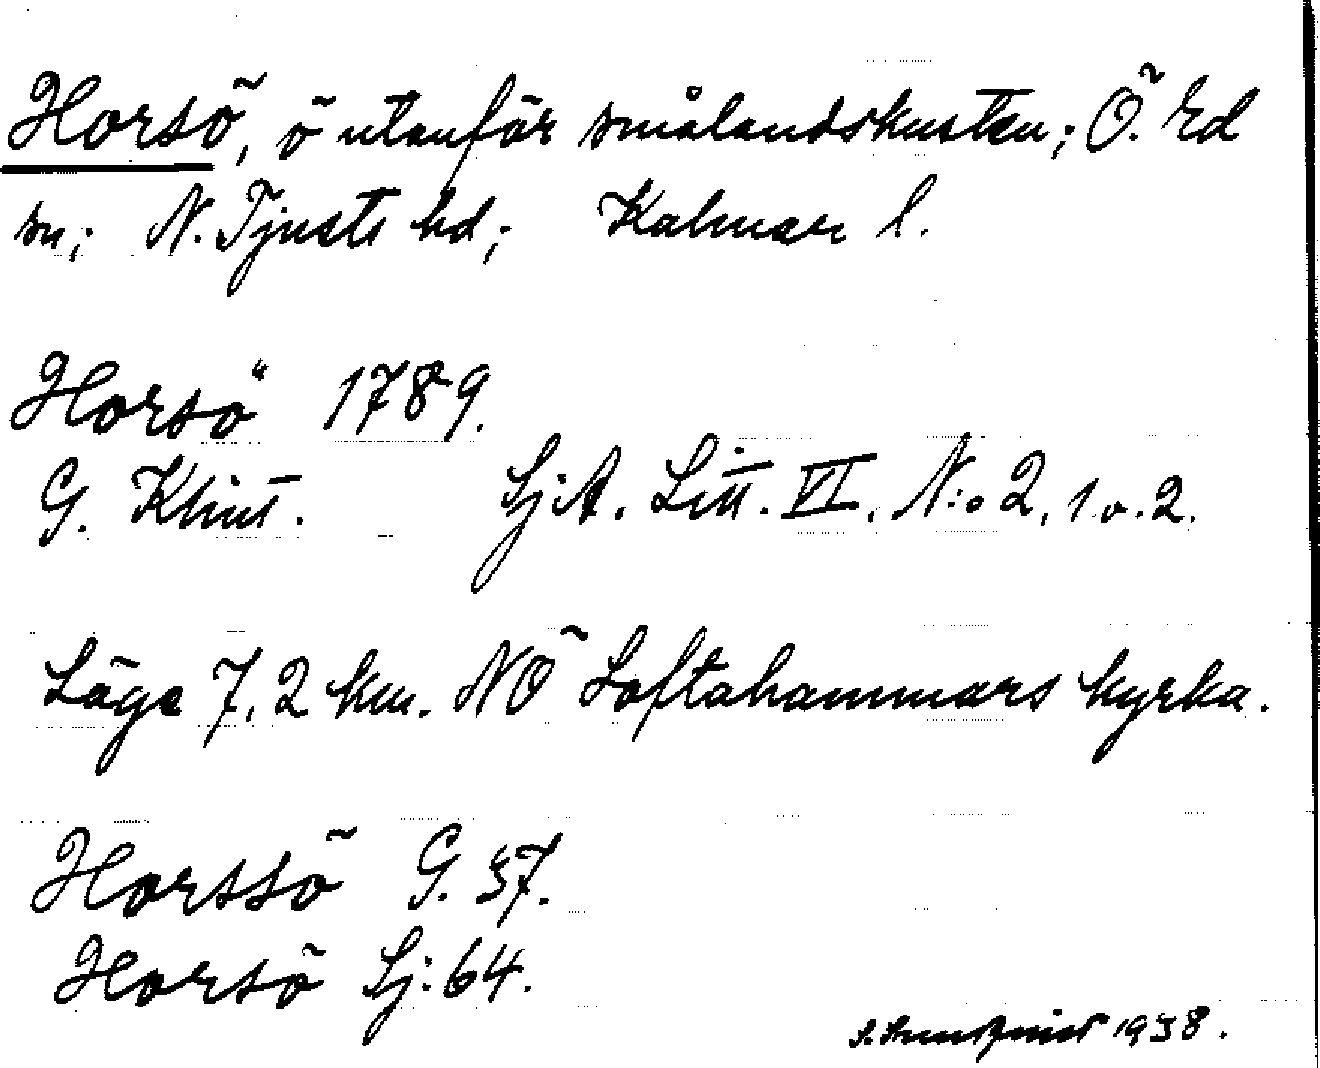 Horsö, ö utanför smålandskusten; Ö. Ed
sn; N. Tjusts hd; Kalmar l.
Horsö 1789.
G. Klint. SjA. Litt. VI. N:o 2, 1 o. 2.
Läge 7,2 km. NÖ Loftahammars kyrka.
Horssö G. 37.
Horsö Sj: 64.
1938.